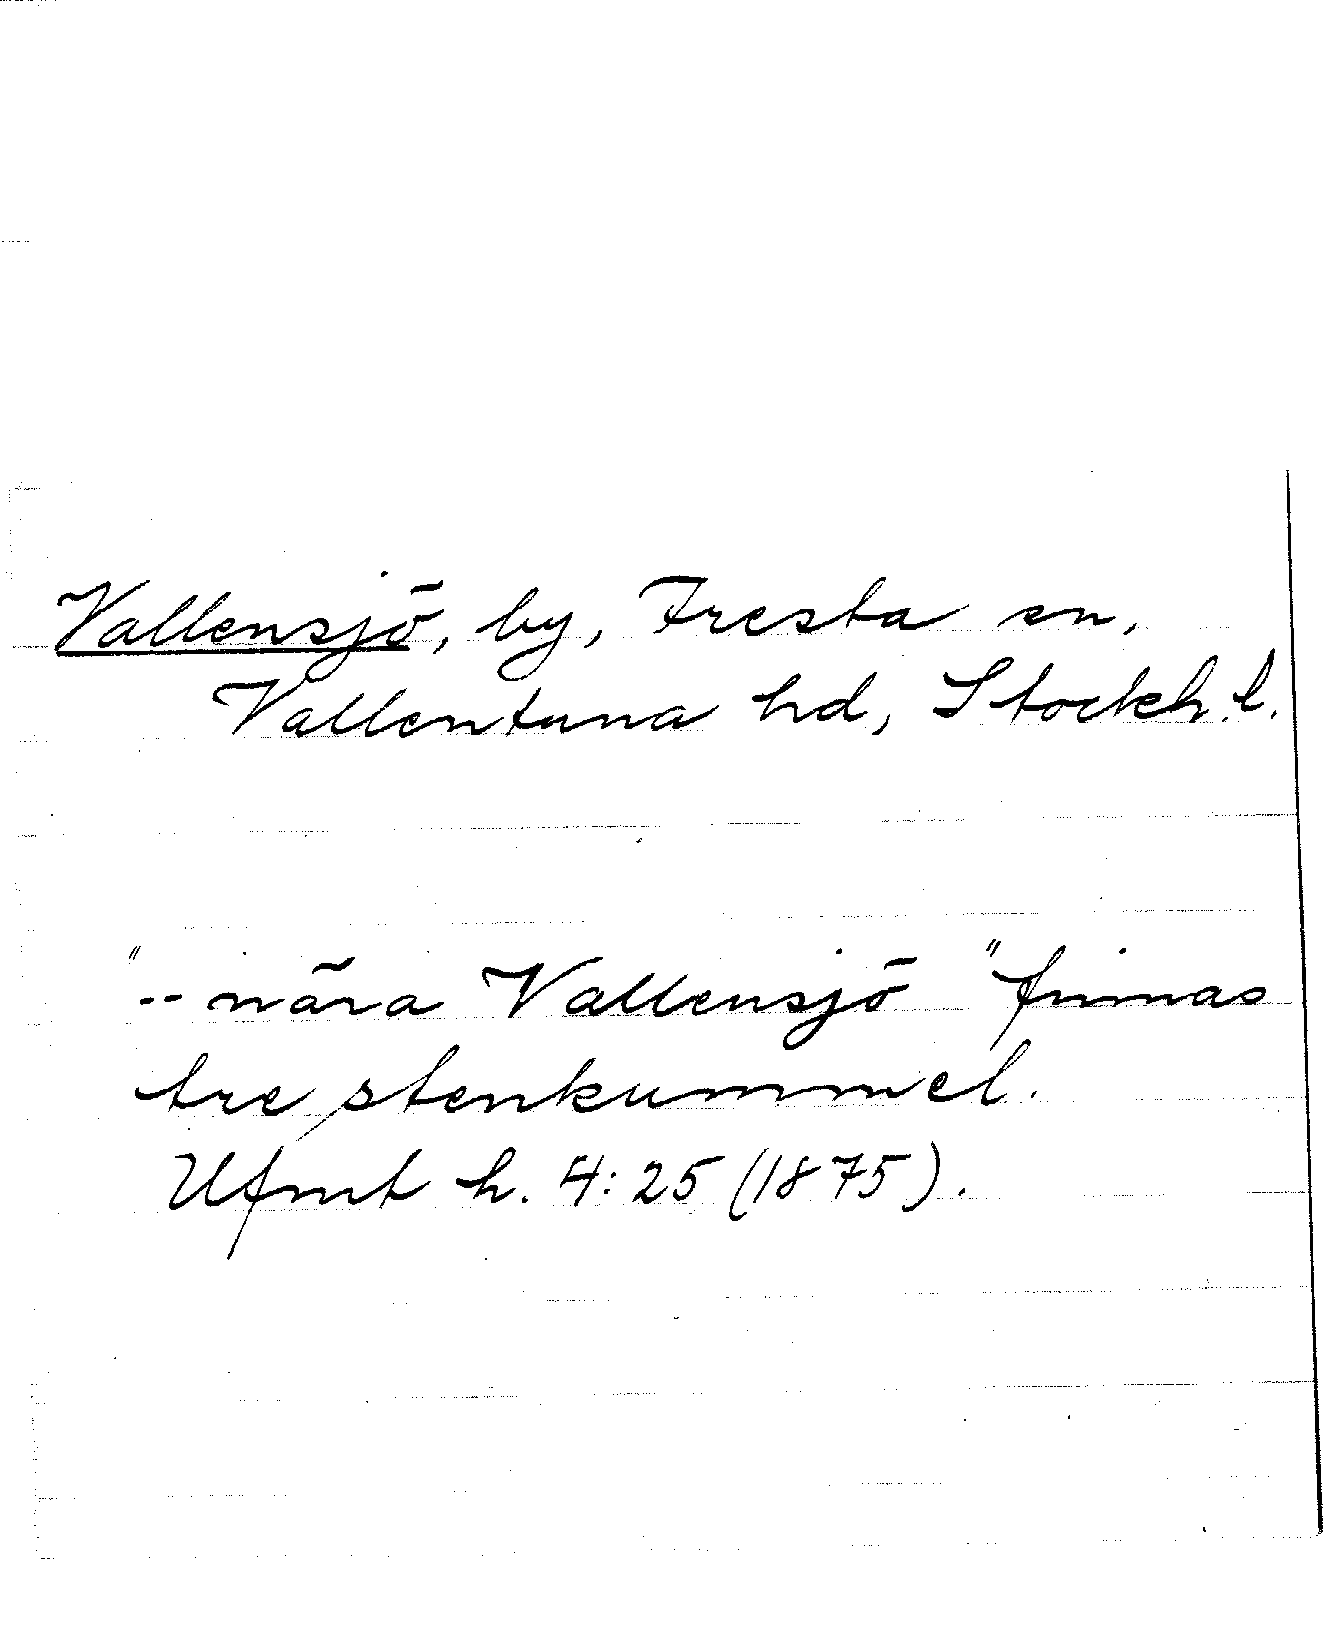 Vallensjö, by, Fresta sn,
Vallentuna hd, Stockh.l.
"-- nära Vallensjö" finnas
tre stenkummel.
Ufmt h. 4:25 (1875).